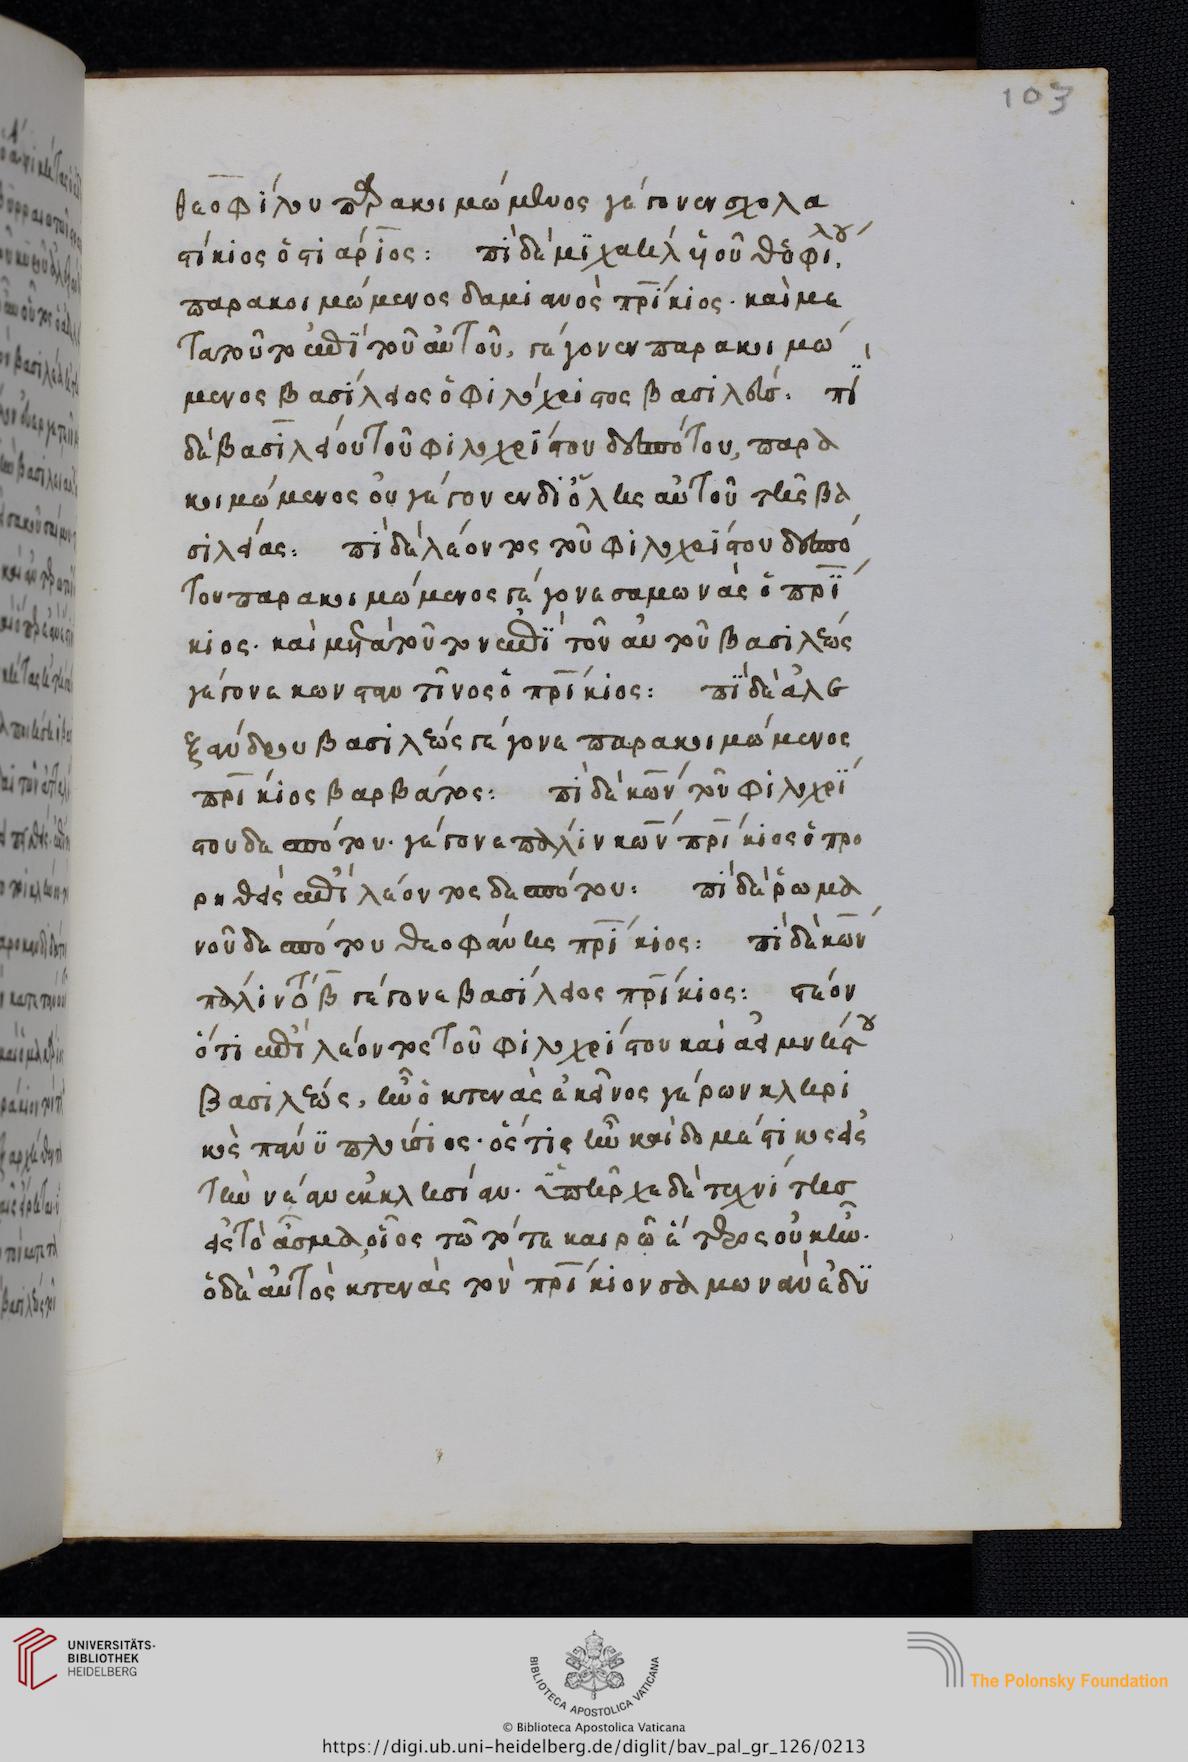 103
θεοφίλου παρακοιμώμενος γέγονεν σχολα
στίκιος ὁ στιάριος: ἐπὶ δὲ μϊχαὴλ ὑϊοῦ θεοφίλου
παρακοιμώμενος δαμιανὸς πρίκιος· καὶ με
τα τοῦτο ἐπῒ τοῦ αὐτοῦ, γέγονεν παρακοιμώ
μενος βασίλειος ὁ φιλόχριστος βασιλεύς: ἐπῒ
δὲ βασιλείου τοῦ φιλοχρίστου δεσπότου, παρα
κοιμώμενος οὐ γέγονεν δι ὅλης αὐτοῦ τῆς βα
σιλείας: ἐπὶ δὲ λέοντος τοῦ φιλοχρίστου δεσπό
του παρακοιμώμενος γέγονε σαμωνὰς ὁ πρϊ
κιος· καὶ μετὰ τοῦτον ἐπῒ τοῦ αὐτοῦ βασιλέως
γέγονε κωνσταντῖνος ὁ πρίκιος: ἐπῒ δὲ ἀλε
ξάνδρου βασιλέως γέγονε παρακοιμώμενος
πρίκιος βαρβάτος: ἐπὶ δὲ κων τοῦ φιλοχρΐ
στου δεσπότου· γέγονε πάλιν κων πρίκιος ὁ προ
ρηθεὶς ἐπὶ λέοντος δεσπότου: ἐπὶ δὲ ῥωμα
νοῦ δεσπότου θεοφάνης πρίκιος: ἐπὶ δὲ κων
πάλιν τὸ β γέγονε βασίλειος πρίκιος: ἰστέον
ὅτι ἐπὶ λέοντος τοῦ φιλοχρίστου καὶ ἀειμνήστου
βασιλέως, ἦν ὁ κτενὰς ἐκεῖνος γέρων κληρι
κὸς πάνϋ πλούσιος· ὅς τις ἦν καὶ δομέστικος εἰς
τὴν νέαν ἐκκλησίαν· ὑπῆρχε δὲ τεχνίτης
εἰς τὸ ἆσμα, οἷος τῶ τότε καιρῶ ἕτερος οὐκ ἦν·
ὁ δὲ αὐτὸς κτενὰς τὸν πρίκιον σαμωνὰν ἐδϋ
UNIVERSITÄTS-
BIBLIOTHEK
HEIDELBERG
BIBLIOTECA APOSTOLICA VATICANA
The Polonsky Foundation
© Biblioteca Apostolica Vaticana
https://digi.ub.uni-heidelberg.de/diglit/bav_pal_gr_126/0213